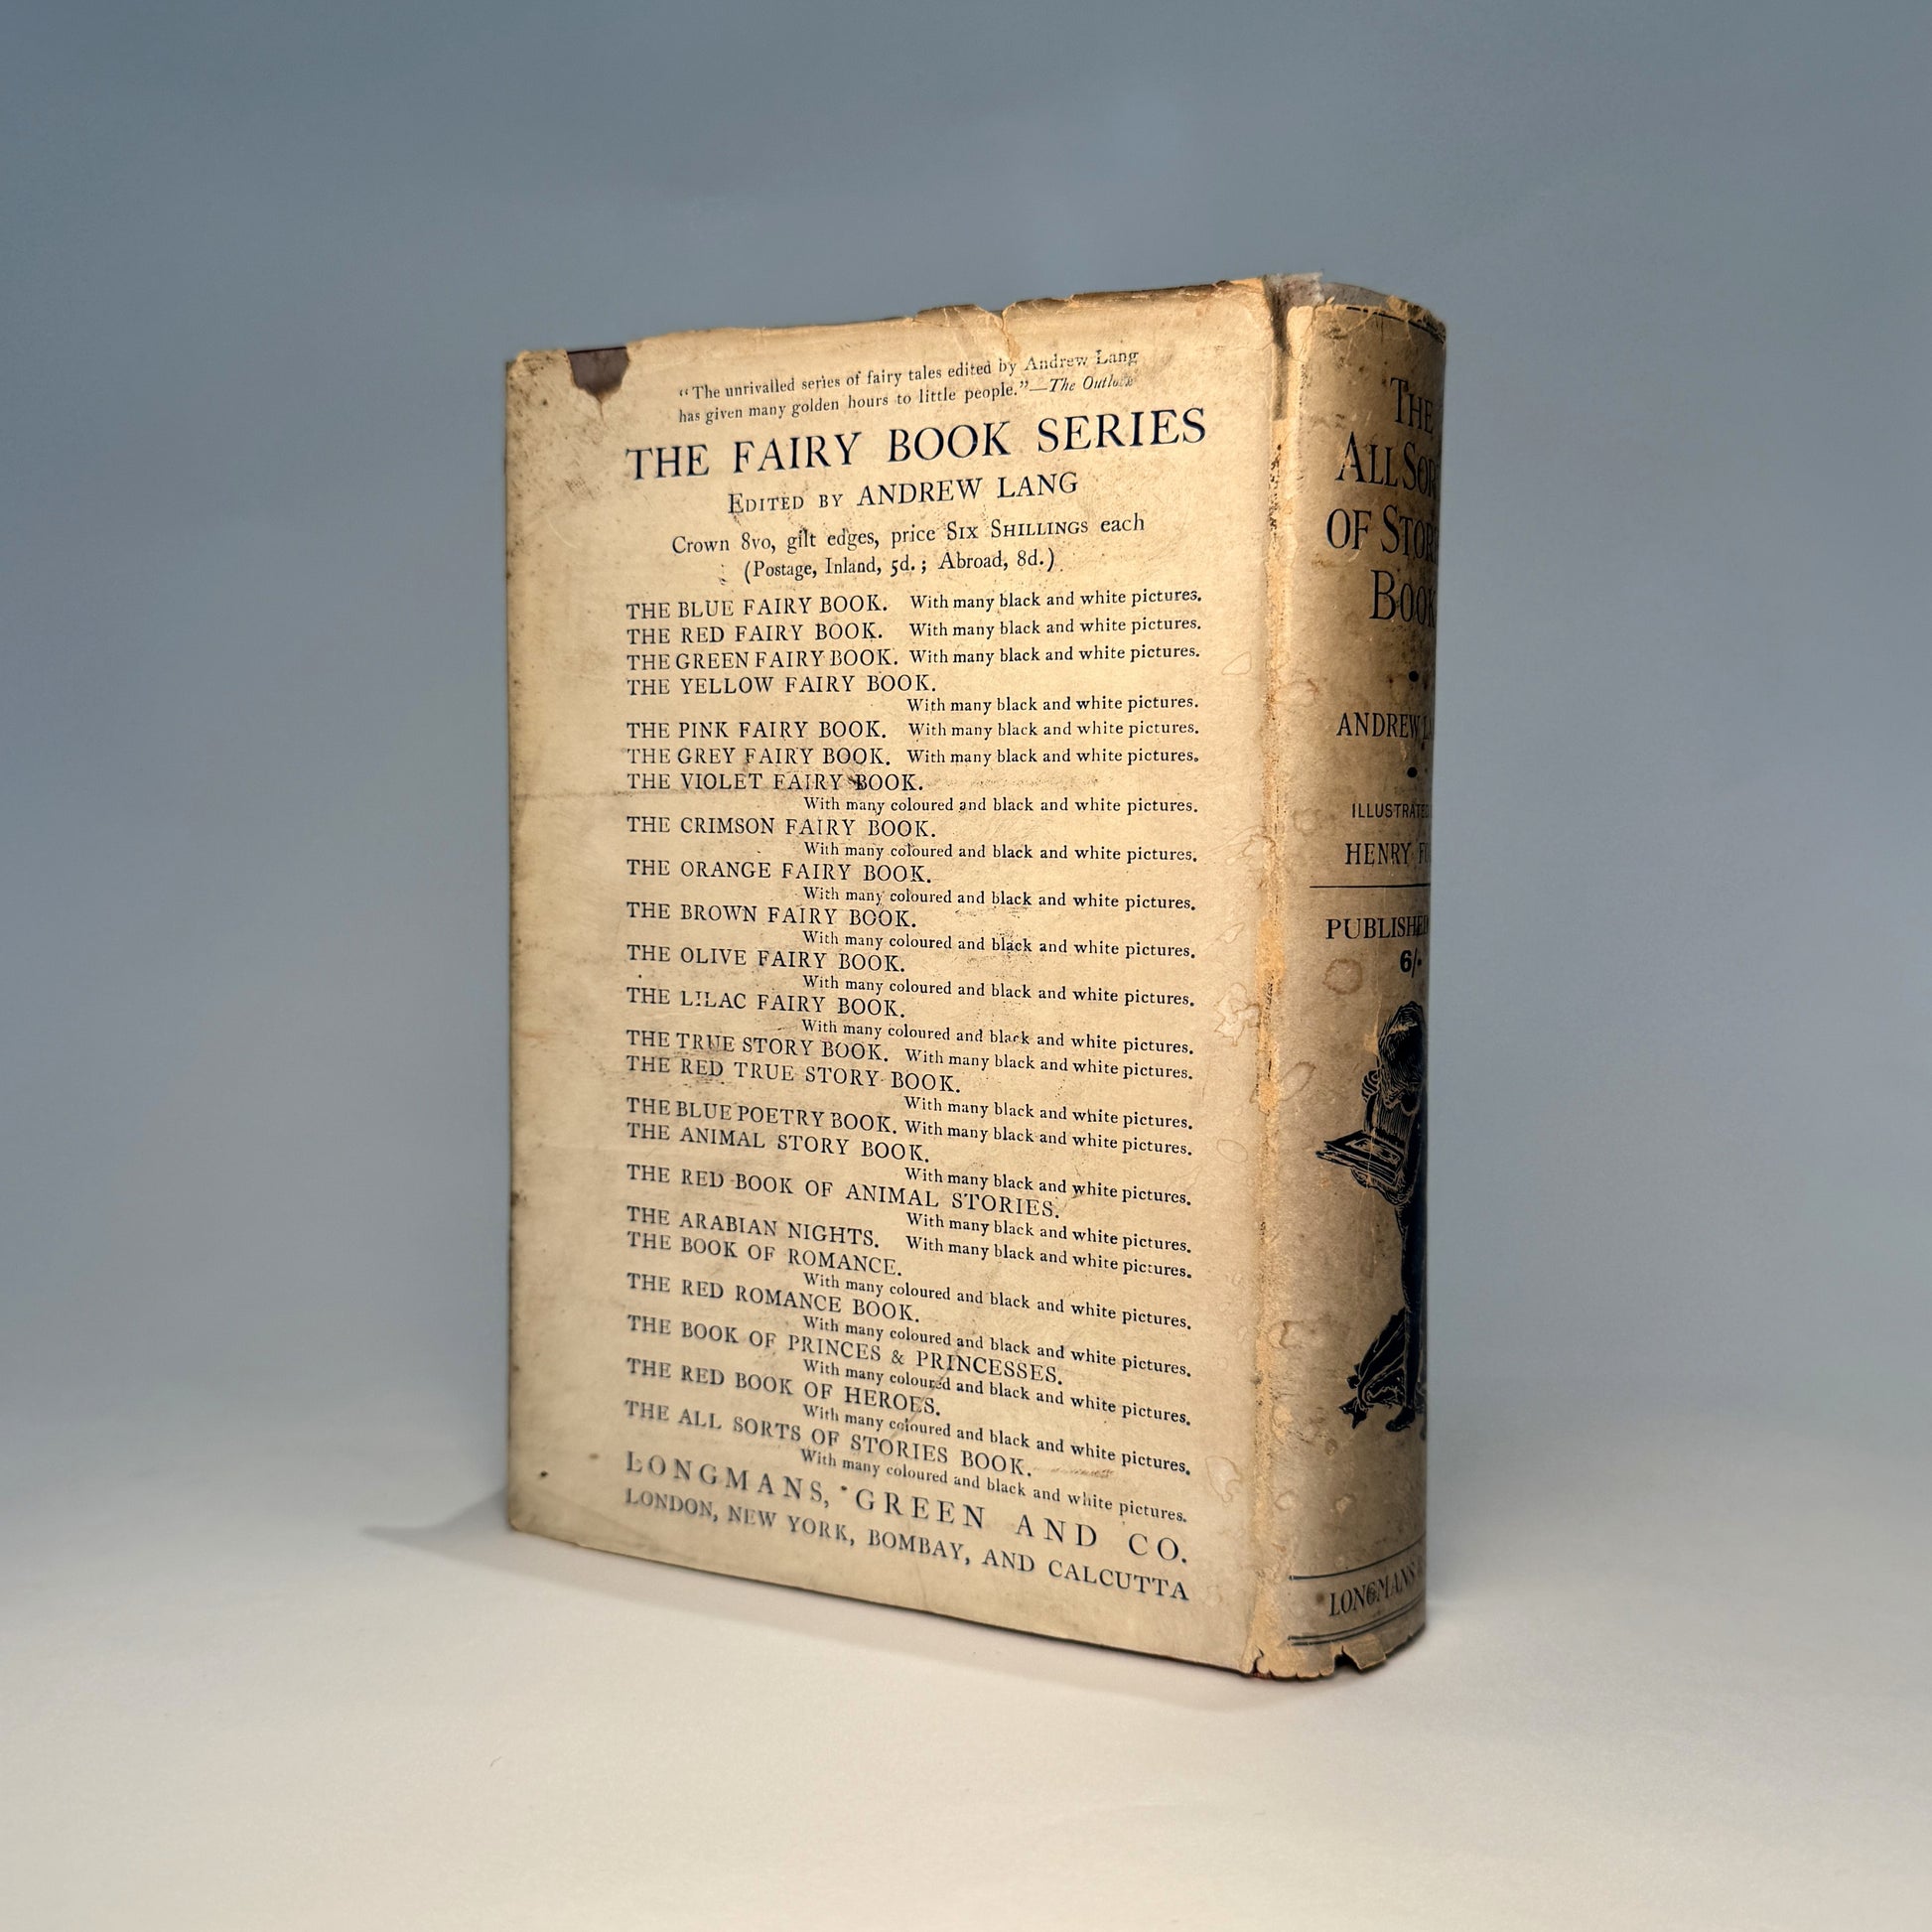 “The unrivalled series of fairy tales edited by Andrew Lang
has given many golden hours to little people.”—The
THE FAIRY BOOK SERIES
EDITED BY ANDREW LANG
Crown 8vo, gilt edges, price SIX SHILLINGS each
(Postage, Inland, 5d.; Abroad, 8d.)
THE BLUE FAIRY BOOK. With many black and white pictures.
THE RED FAIRY BOOK. With many black and white pictures.
THE GREEN FAIRY BOOK. With many black and white pictures.
THE YELLOW FAIRY BOOK.
With many black and white pictures.
THE PINK FAIRY BOOK. With many black and white pictures.
THE GREY FAIRY BOOK. With many black and white pictures.
THE VIOLET FAIRY BOOK.
With many coloured and black and white pictures.
THE CRIMSON FAIRY BOOK.
With many coloured and black and white pictures.
THE ORANGE FAIRY BOOK.
With many coloured and black and white pictures.
THE BROWN FAIRY BOOK.
With many coloured and black and white pictures.
THE OLIVE FAIRY BOOK.
With many coloured and black and white pictures.
THE LILAC FAIRY BOOK.
With many coloured and black and white pictures.
THE TRUE STORY BOOK. With many black and white pictures.
THE RED TRUE STORY BOOK.
With many black and white pictures.
THE BLUE POETRY BOOK. With many black and white pictures.
THE ANIMAL STORY BOOK.
With many black and white pictures.
THE RED BOOK OF ANIMAL STORIES.
With many black and white pictures.
THE ARABIAN NIGHTS. With many black and white pictures.
THE BOOK OF ROMANCE.
With many coloured and black and white pictures.
THE RED ROMANCE BOOK.
With many coloured and black and white pictures.
THE BOOK OF PRINCES & PRINCESSES.
With many coloured and black and white pictures.
THE RED BOOK OF HEROES.
With many coloured and black and white pictures.
THE ALL SORTS OF STORIES BOOK.
With many coloured and black and white pictures.
LONGMANS, GREEN AND CO.
LONDON, NEW YORK, BOMBAY, AND CALCUTTA
THE
ALL
OF
BOOK
ANDREW
ILLUSTRATED
HENRY
PUBLISHED
6/-
LONGMANS